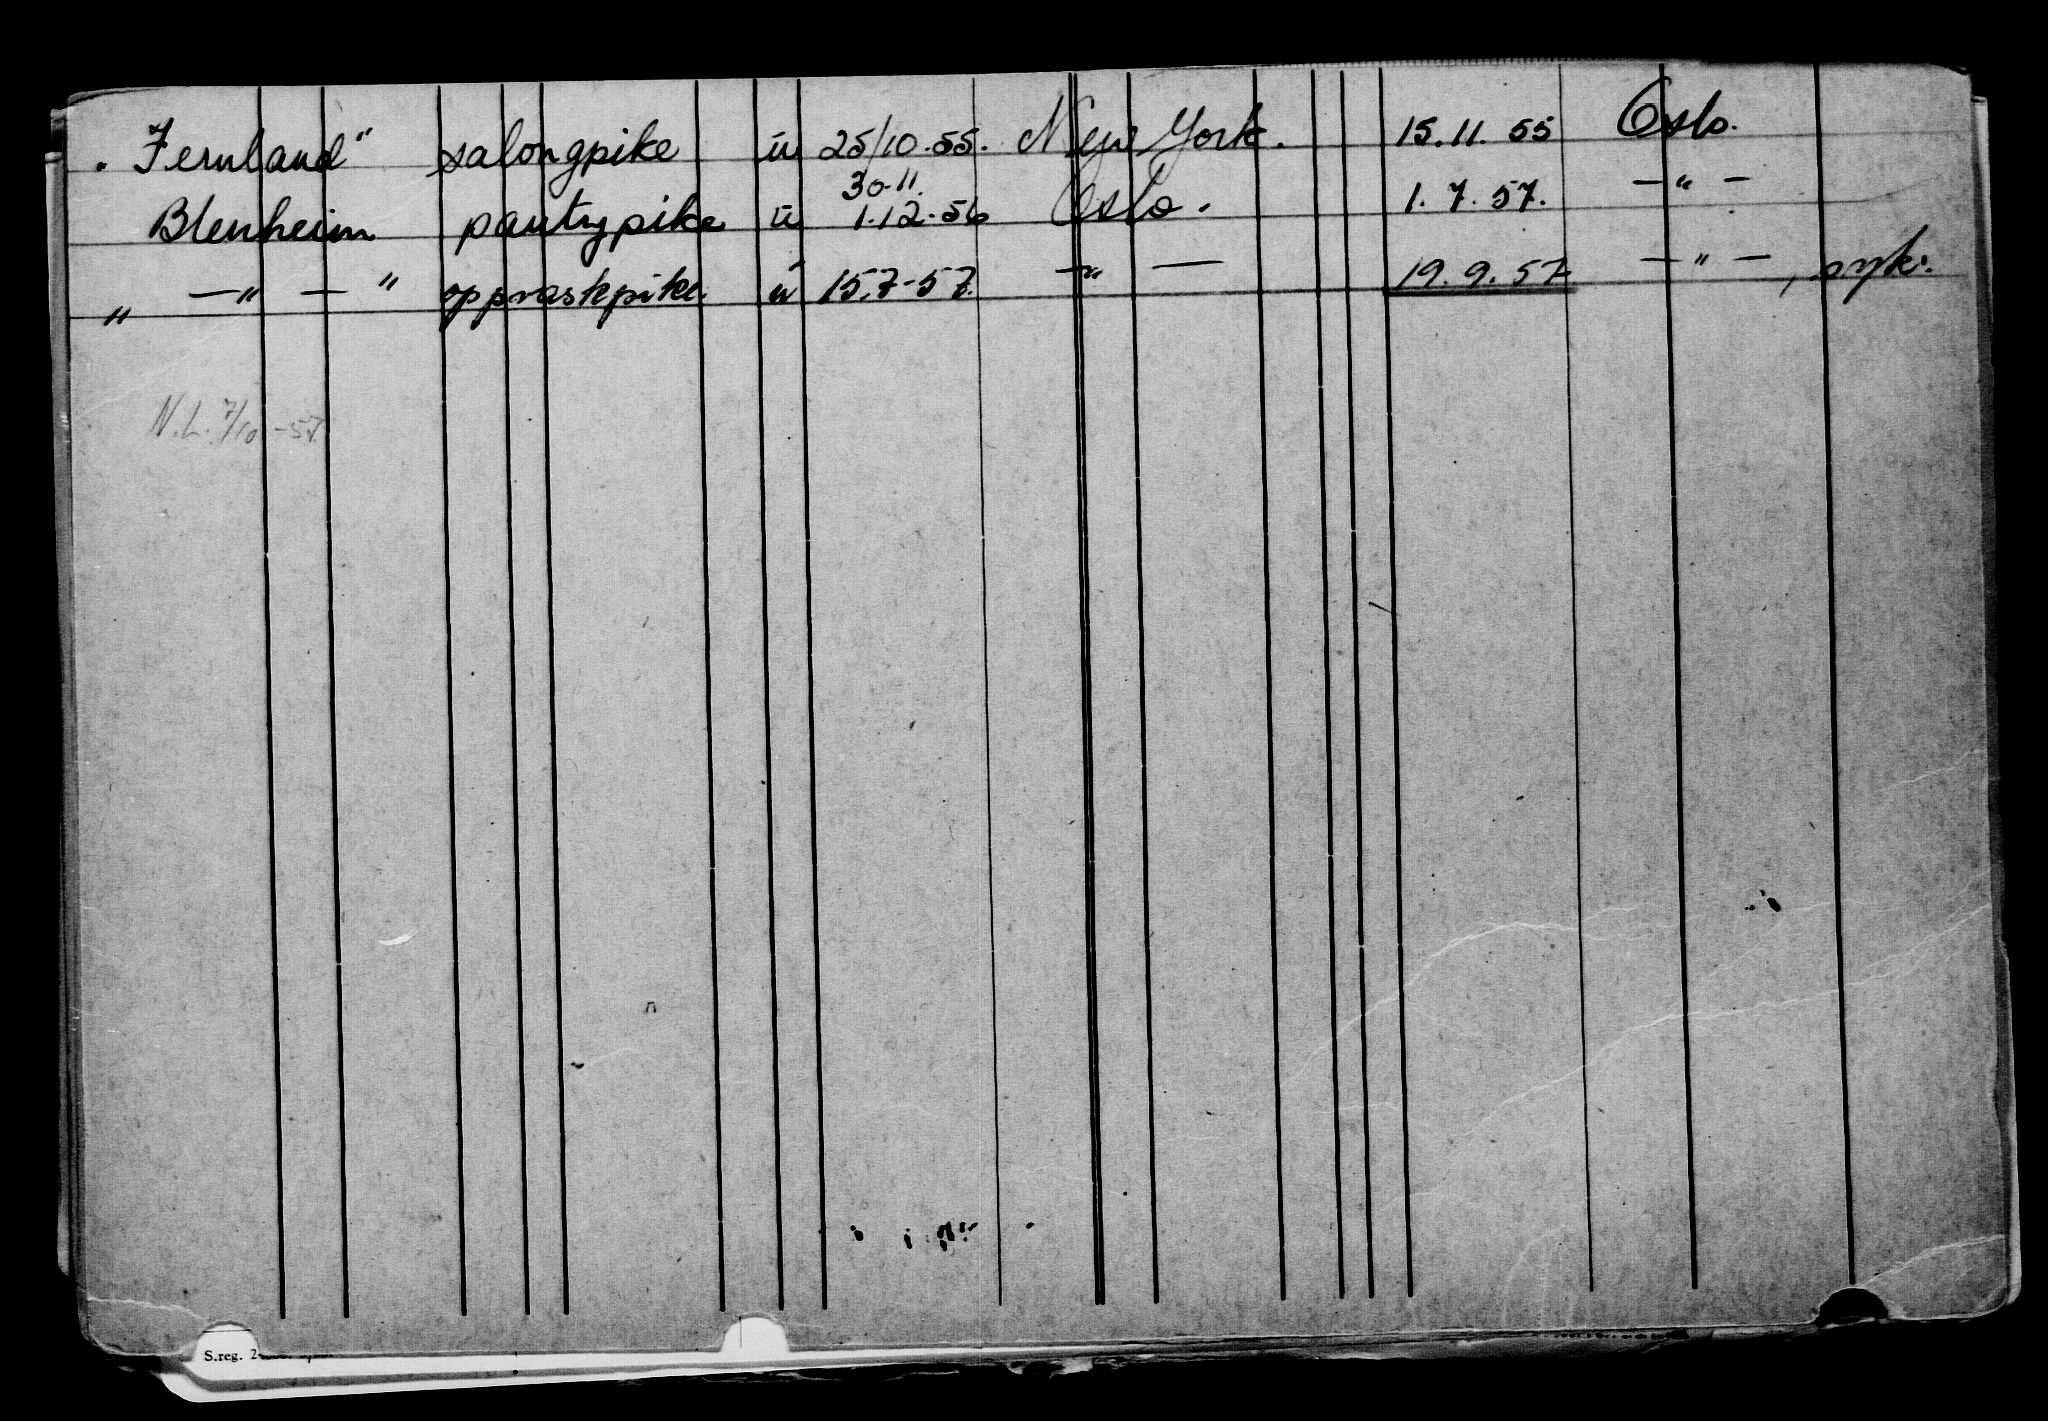 „Fernland" salongpike ū 25/10.55. New York. 15.11.55 Oslo.
30.11.
Blenheim pantrypike ū 1.12.56 Oslo. 1.7.57. —"—
„ —"— " oppvaskpike. ū 15.7-57. —"— 19.9.57 —"—, syk.
N.L. 7/10-57.
S.reg. 2